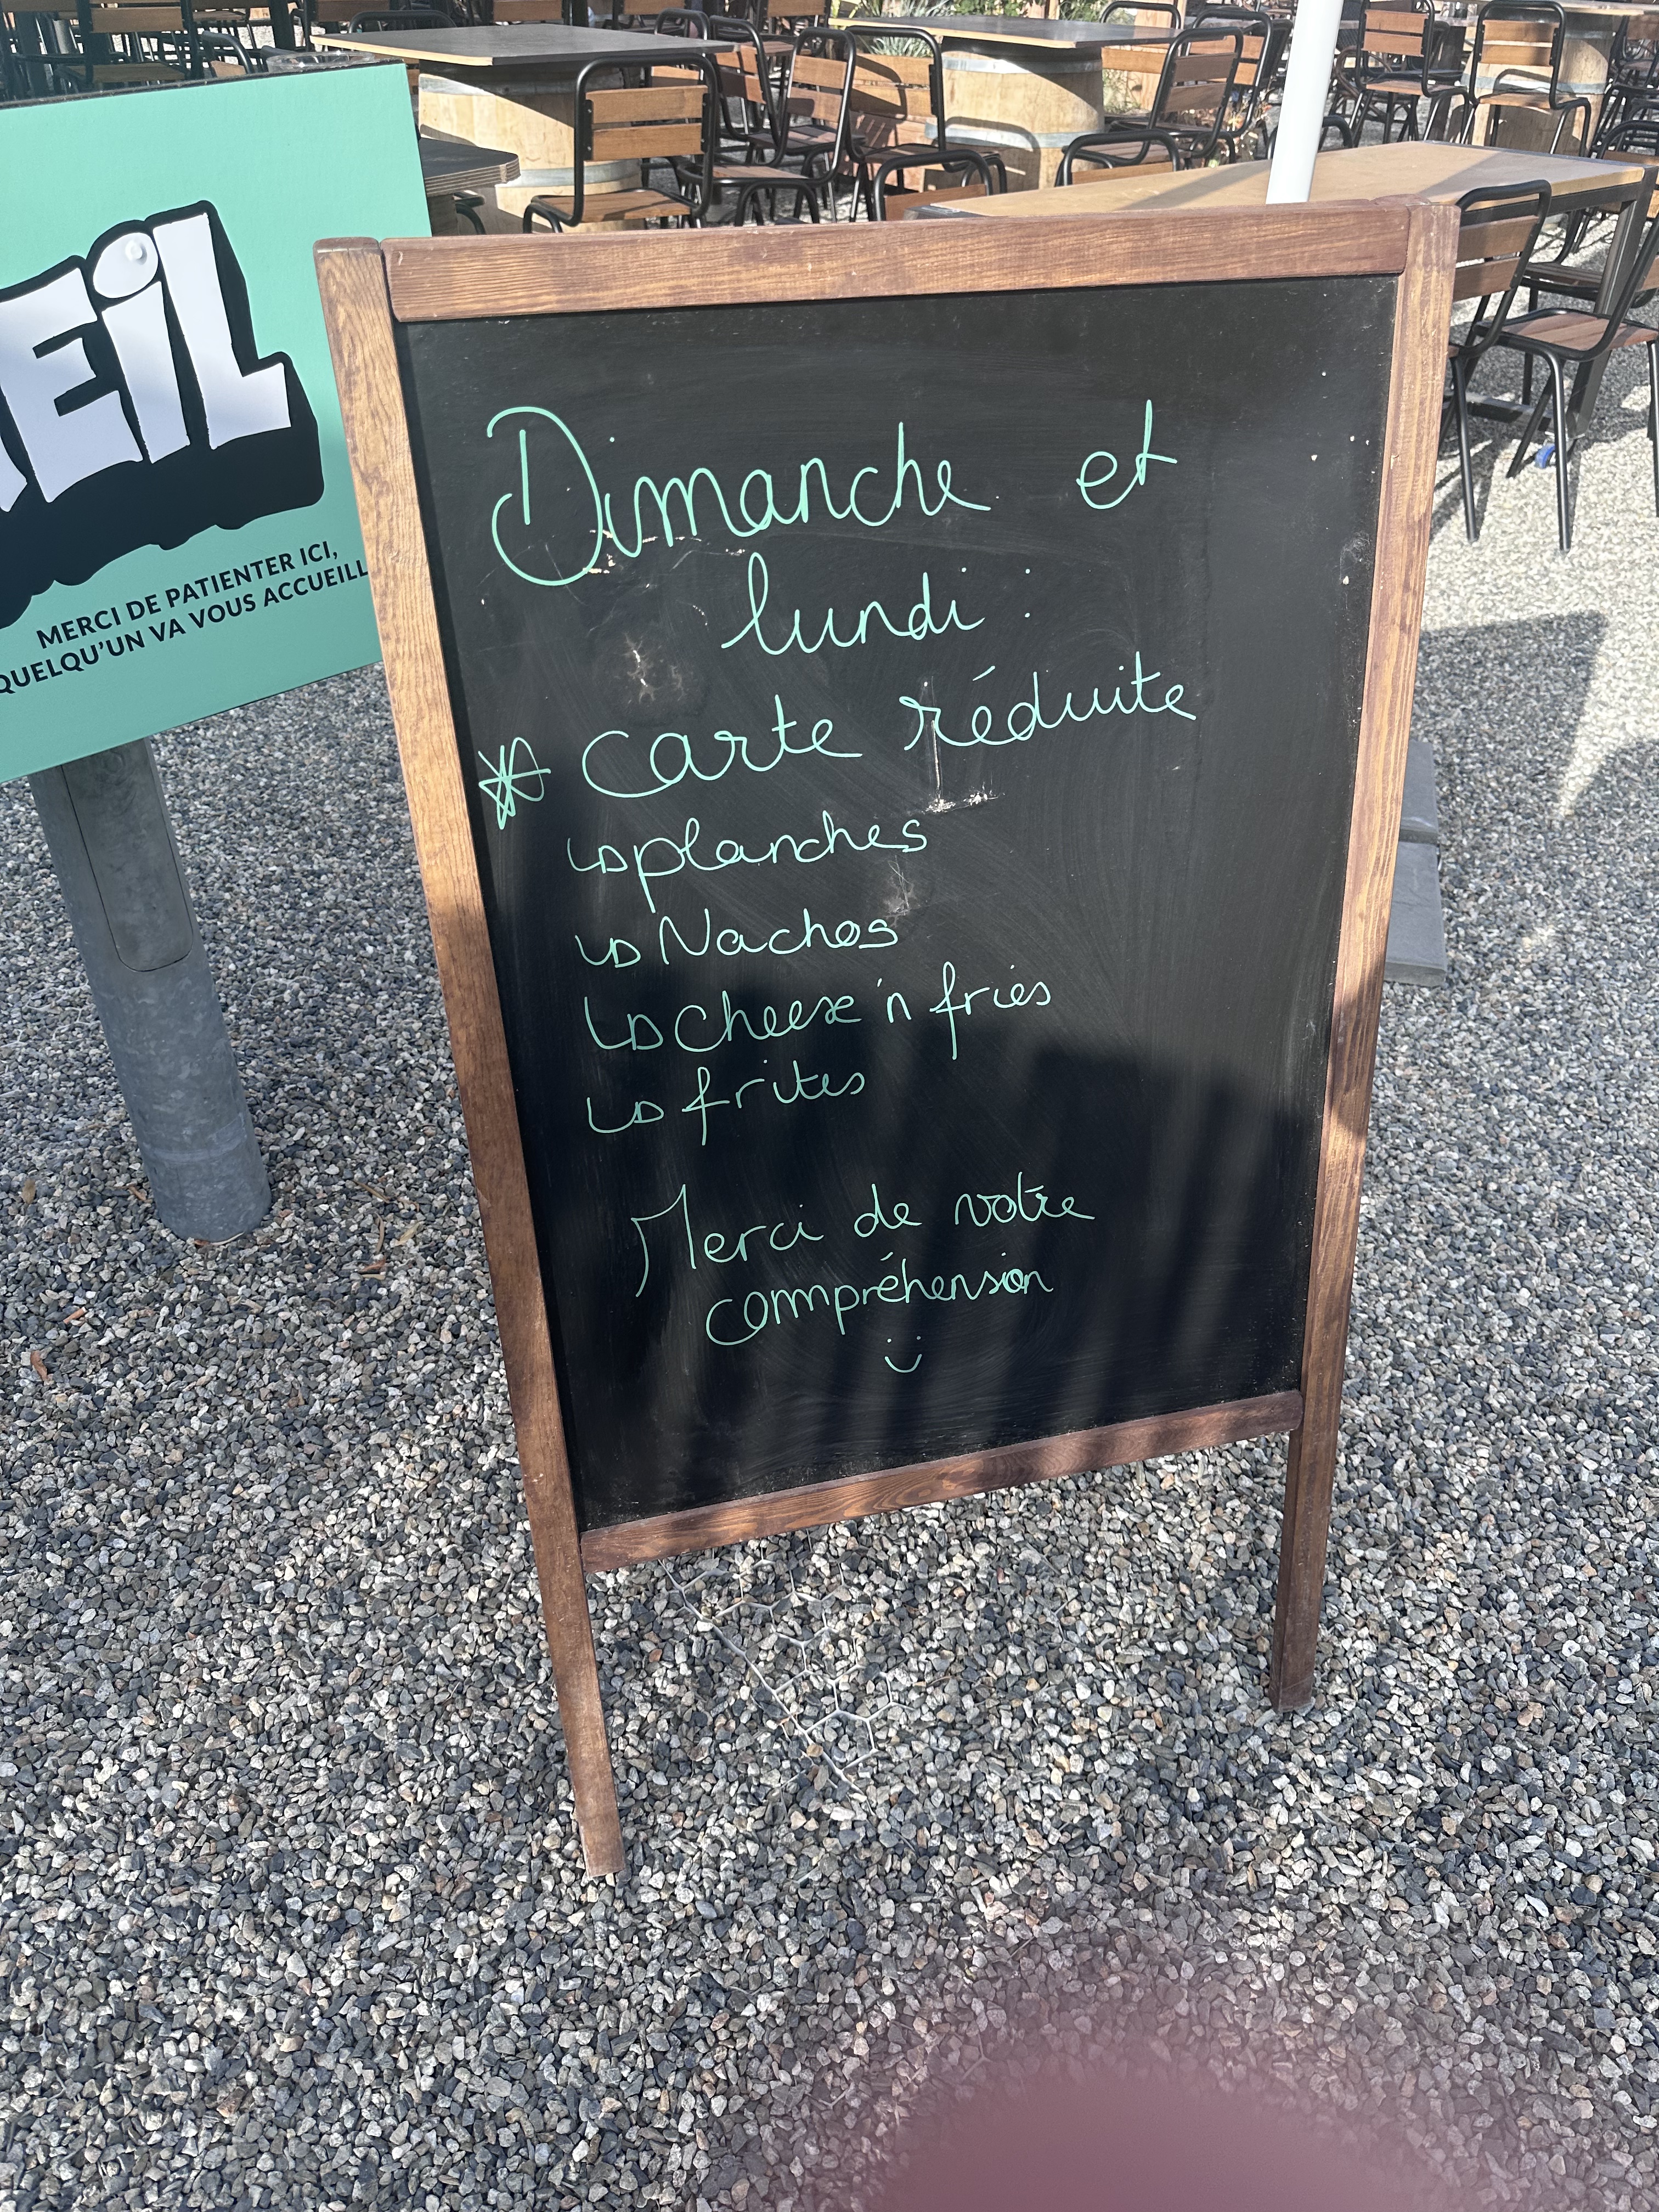 EiL
MERCI DE PATIENTER ICI,
QUELQU'UN VA VOUS ACCUEILL
Dimanche et
lundi :
carte réduite
planches
Nachos
Cheese 'n fries
frites
Merci de votre
compréhension